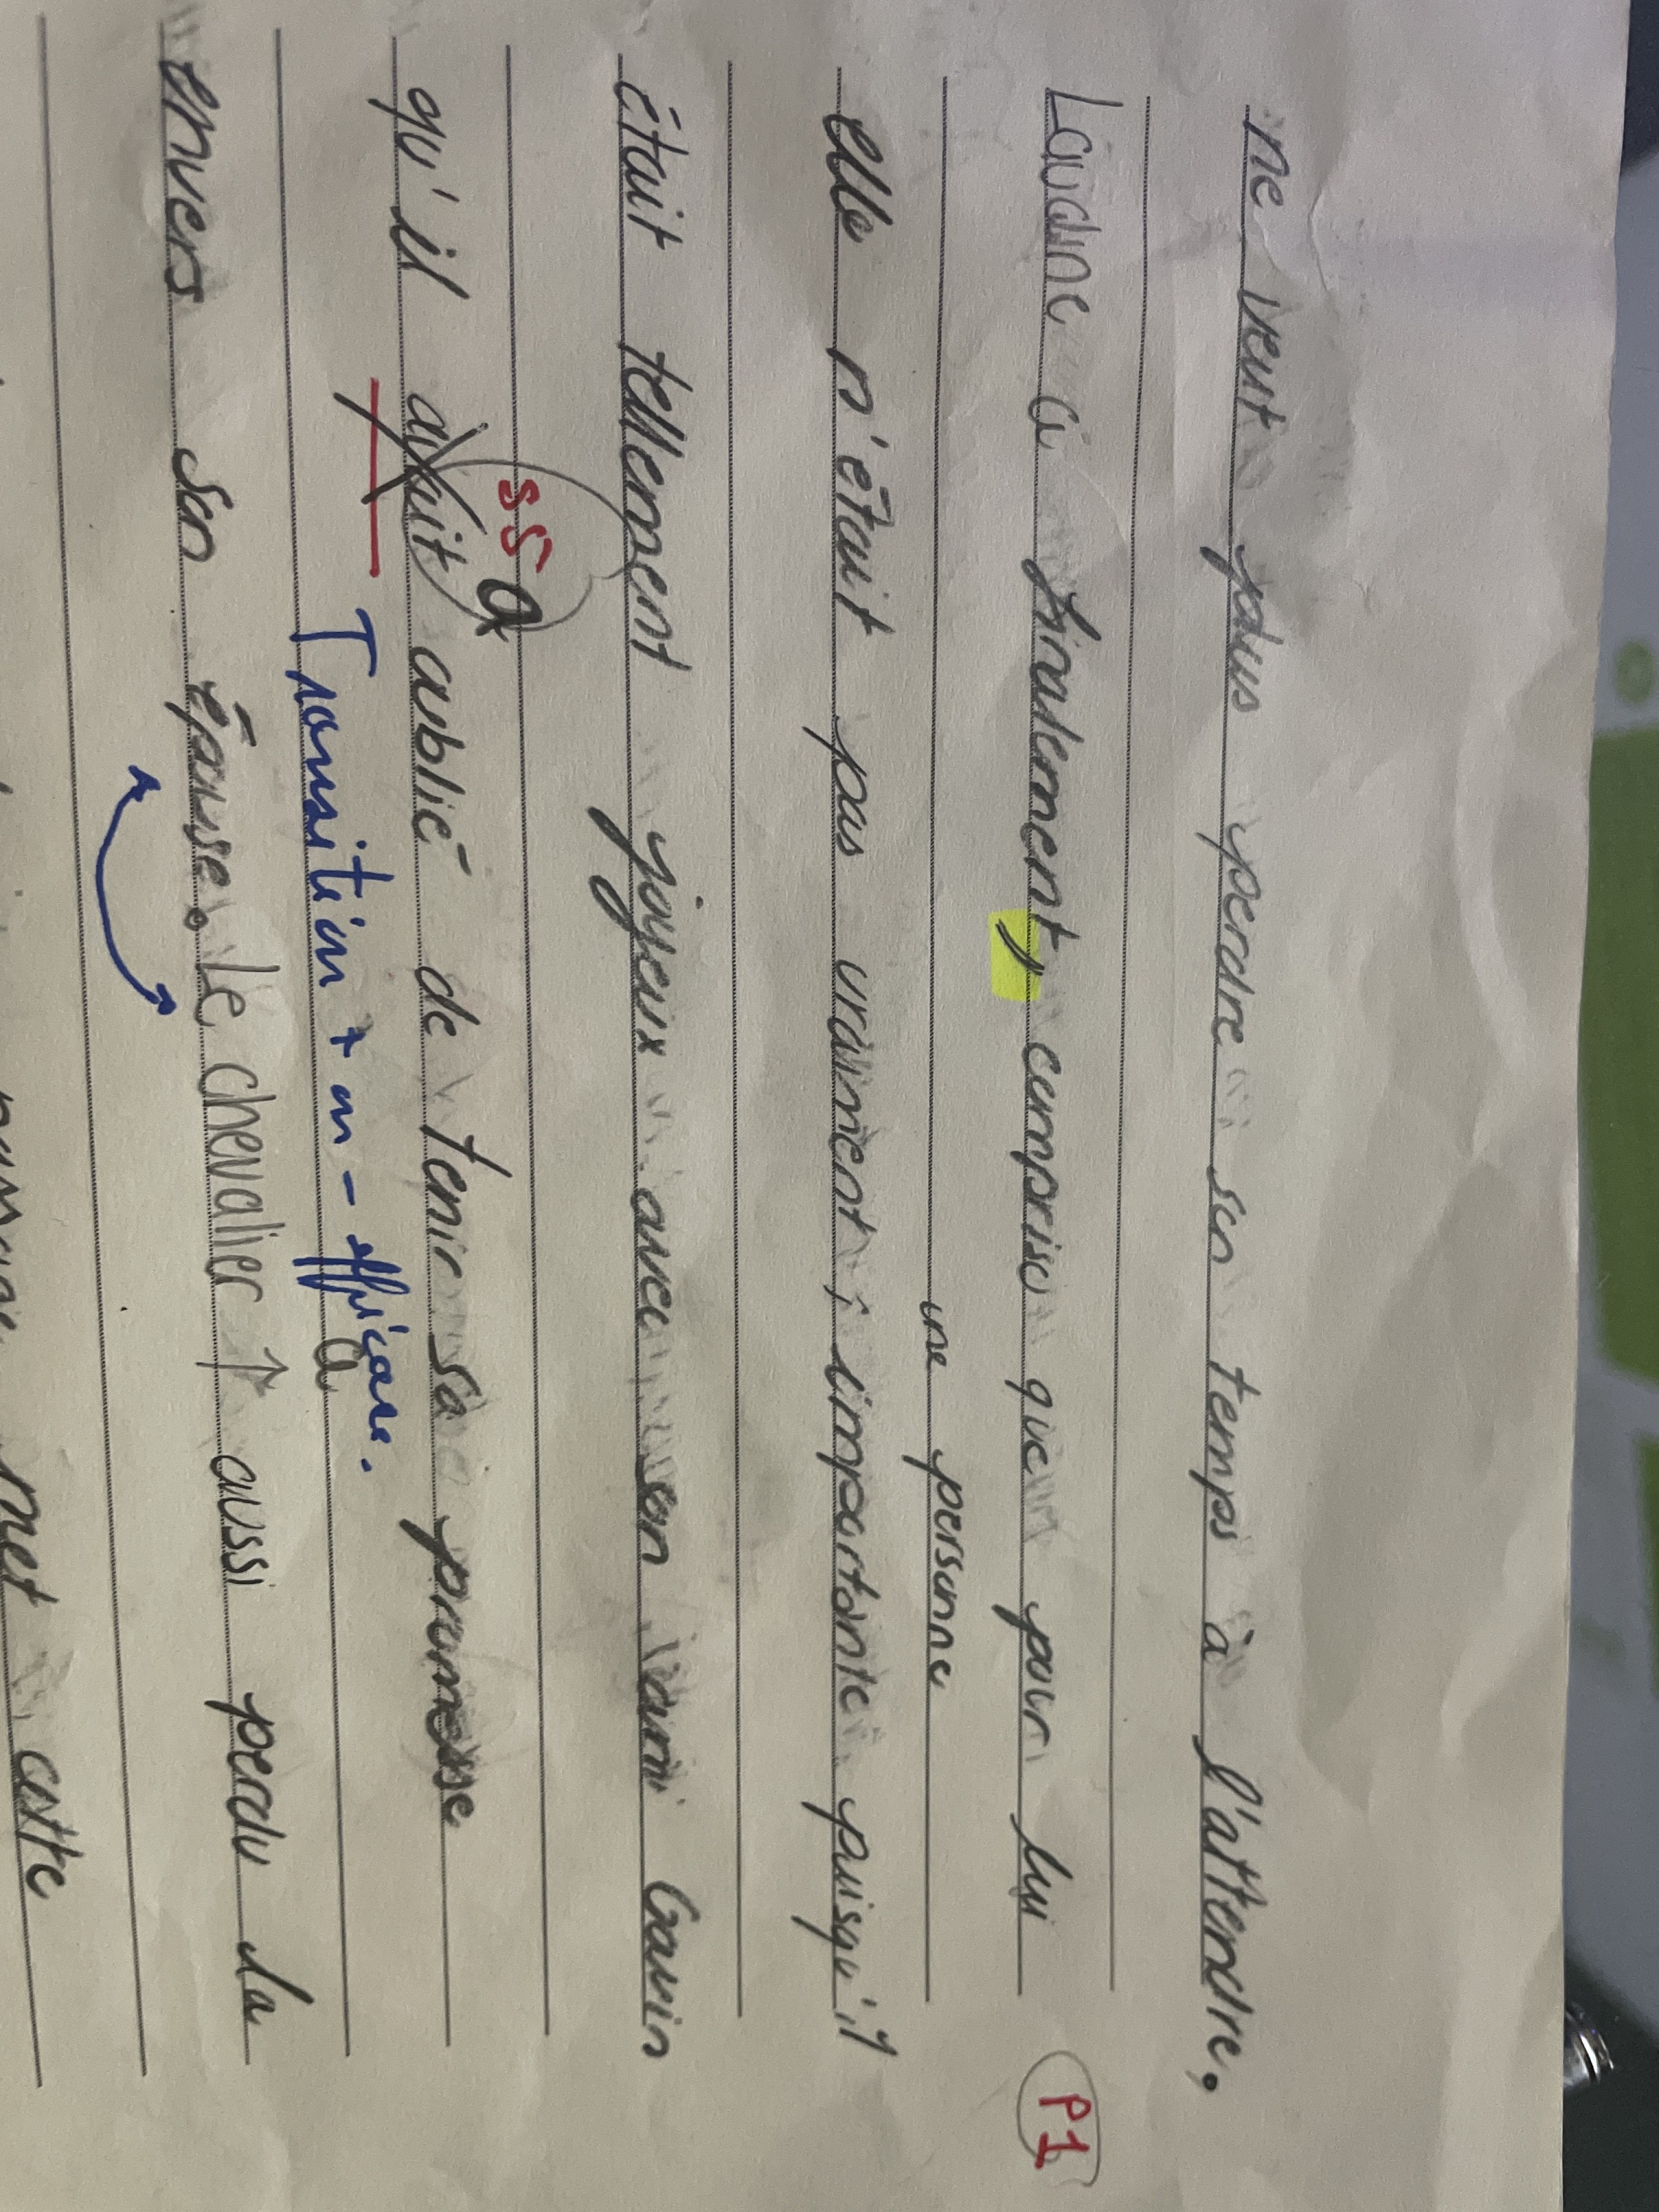 ne veut plus perdre son temps à l'attendre.
Laudine a finalement, comprise que pour lui
P1
une personne
elle n'était pas vraiment importante puisqu'il
était tellement joyeux avec son ami Gauvin
ss a
qu'il avait oublié de tenir sa promesse
Transition + ou - efficace.
a
envers son épouse. Le chevalier ↑ aussi perdu la
met cette